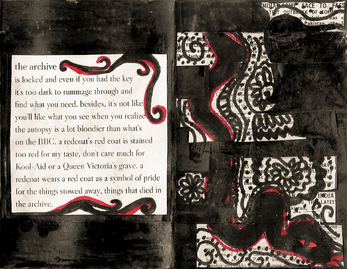 the archive
is locked and even if you had the key
it's too dark to rummage through and
find what you need. besides, it's not like
you'll like what you see when you realize
the autopsy is a lot bloodier than what's
on the BBC. a redcoat's red coat is stained
too red for my taste, don't care much for
Kool-Aid or a Queen Victoria's grave. a
redcoat wears a red coat as a symbol of pride
for the things stowed away, things that died in
the archive.
FACE TO FACE
INDIA